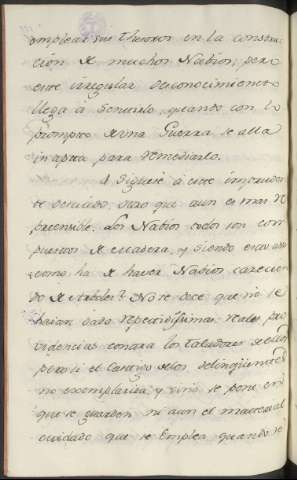 emplear sus Thesoros en la construc
cion de muchos Nabios, pero
este irregular desconocimiento
llega à sentirlo, quando con lo
prompto de una Guerra, se alla
inapta para remediarlo.
A Siguese à este impruden
te descuido, otro que aun es mas re
preensible. Los Nabios todos son com
puestos de madera, y siendo esto asi
como ha de haver Nabios carecien
do de Arboles? No se dice que no se
haian dado repetidissimas reales pro
videncias contra los taladores de ellos
pero si el Castigo de los delinquentes
no exemplariza; y sino se pone en
que se guarden ni aun el mas casual
cuidado que se Emplea quando se